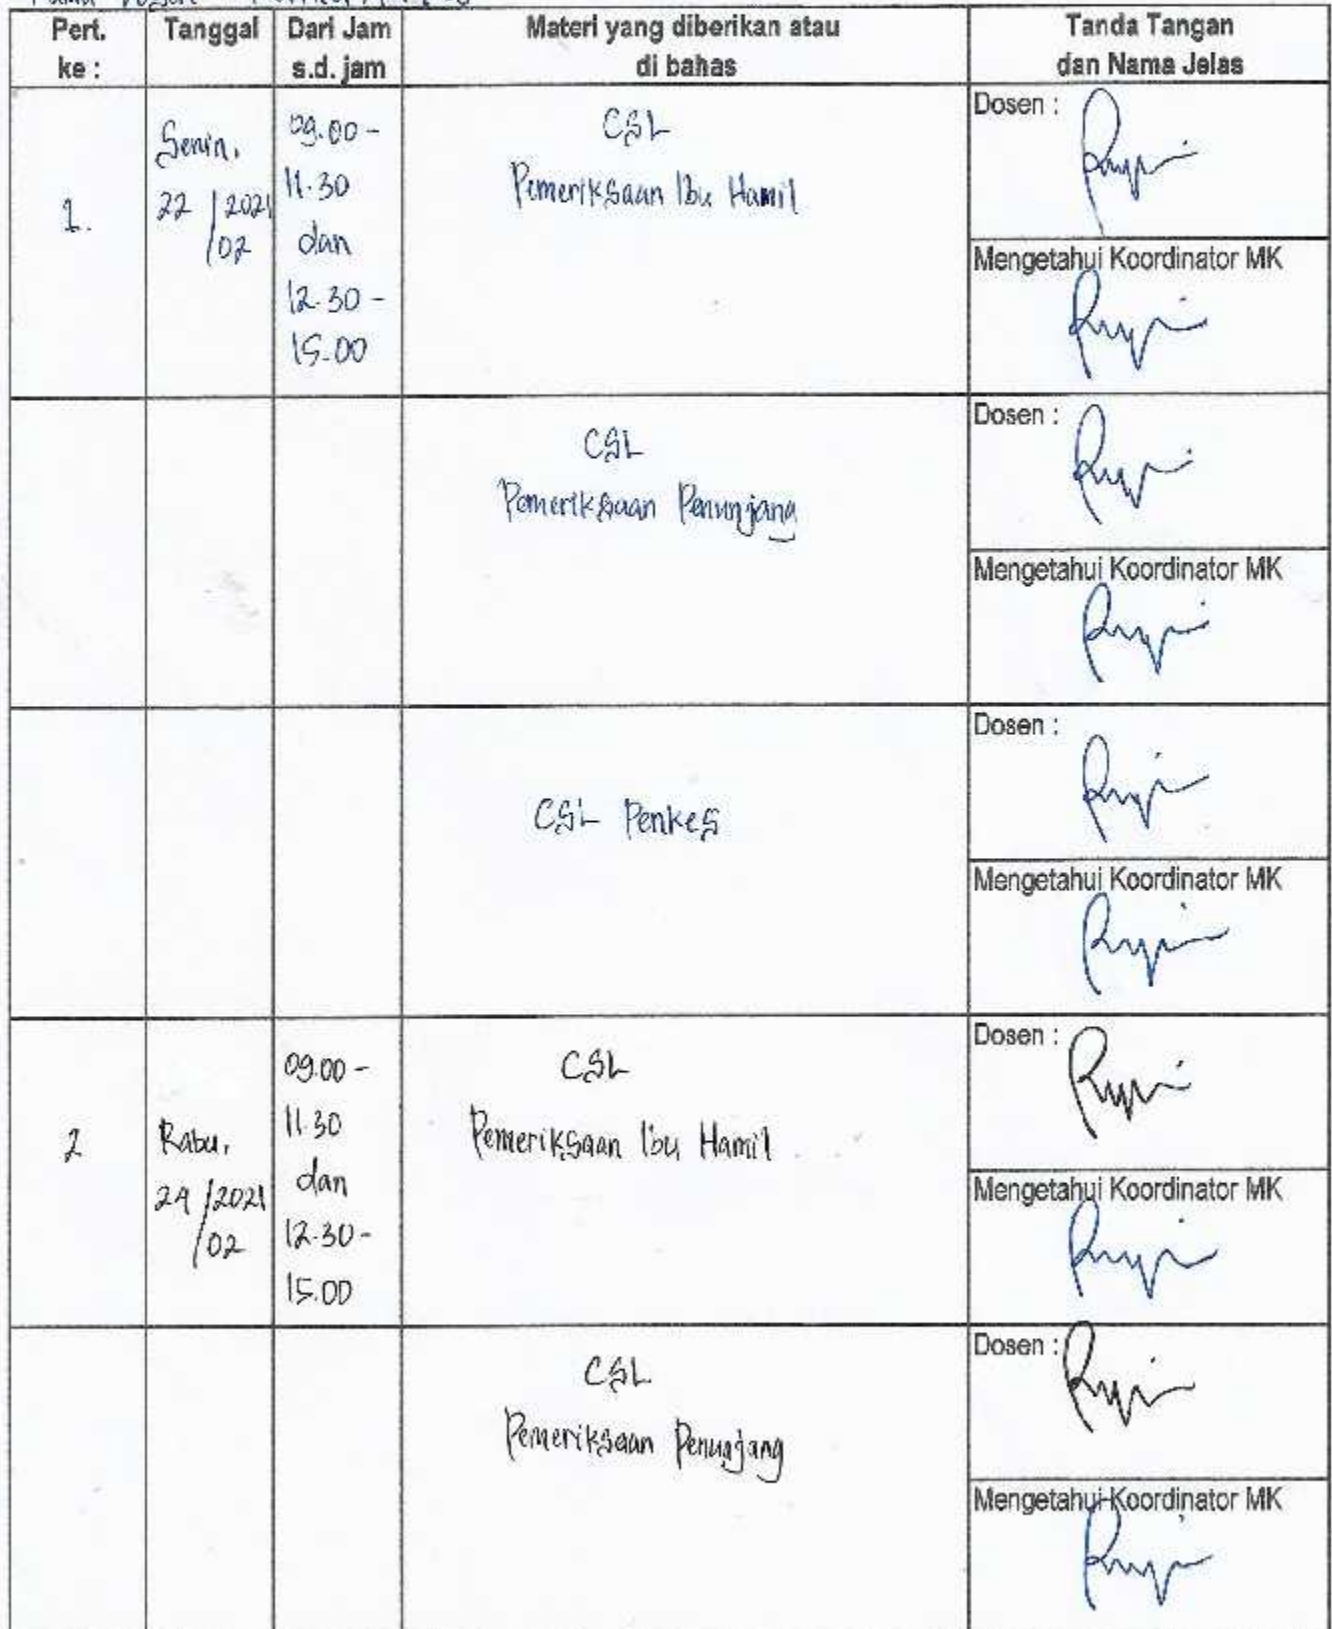 Pert. ke : Tanggal Dari Jam s.d. jam Materi yang diberikan atau di bahas Tanda Tangan dan Nama Jelas
1.
Senin,
22/02 2021
09.00 -
11.30
dan
12.30 -
15.00
CSL
Pemeriksaan Ibu Hamil
Dosen :
Mengetahui Koordinator MK
CSL
Pemeriksaan Penunjang
Dosen :
Mengetahui Koordinator MK
CSL Penkes
Dosen :
Mengetahui Koordinator MK
2
Rabu,
24/02 2021
09.00 -
11.30
dan
12.30 -
15.00
CSL
Pemeriksaan Ibu Hamil
Dosen :
Mengetahui Koordinator MK
CSL
Pemeriksaan Penunjang
Dosen :
Mengetahui Koordinator MK